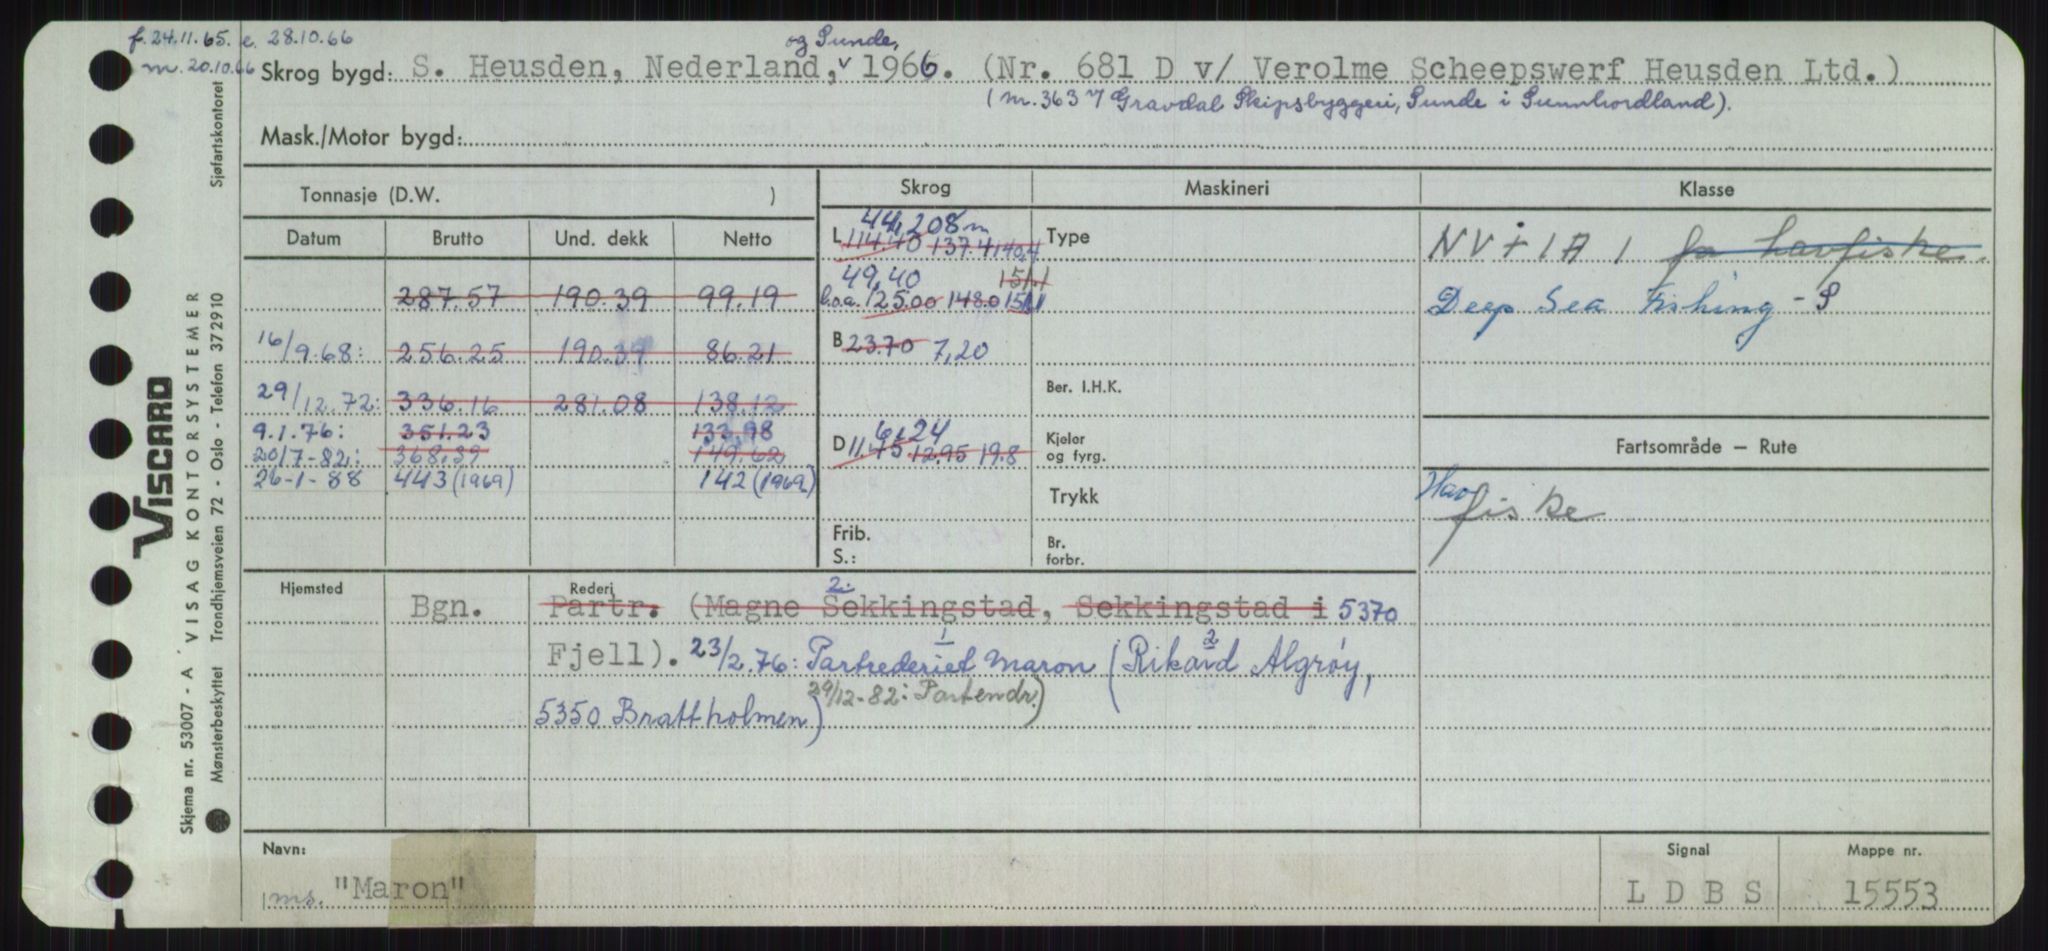 f. 24.11.65. e. 28.10.66
m. 20.10.66
og Sunde,
Skrog bygd: S. Heusden, Nederland, v 1966. (Nr. 681 D v/ Verolme Scheepswerf Heusden Ltd.)
(nr. 363 v/ Gravdal Skipsbyggeri, Sunde i Sunnhordland).
Mask./Motor bygd:
Tonnasje (D.W. )
Skrog Maskineri Klasse
Datum Brutto Und. dekk Netto
44,208 m
L 114.40 137.4 140.4 Type
NV + 1A 1 for havfiske.
Deep Sea Fishing - S
287.57 190.39 99.19
49,40 151.1
l.o.a. 125.00 148.0 151.1
16/9.68: 256.25 190.39 86.21
B 23.70 7,20
29/12.72: 336.16 281.08 138.12
Ber. I.H.K.
9.1.76: 351.23 133.98
20/7-82: 368.39 149.62
26-1-88 443 (1969) 142 (1969)
6,24
D 11.75 12.95 19.8
Kjeler
og fyrg.
Trykk
Frib.
S.:
Br.
forbr.
Fartsområde – Rute
Havfiske
Hjemsted Rederi
2.
Bgn. Partr. (Magne Sekkingstad, Sekkingstad i 5370
Fjell). 23/2.76: Partrederiet Maron (Rikard Algrøy,
1 2
29/12-82: Partendr.)
5350 Brattholmen)
Navn: Signal Mappe nr.
ms. "Maron" L D B S 15553
Skjema nr. 53007 - A VISAG KONTORSYSTEMER
VISCARD
Mønsterbeskyttet Trondhjemsveien 72 - Oslo - Telefon 372910 Sjøfartskontoret